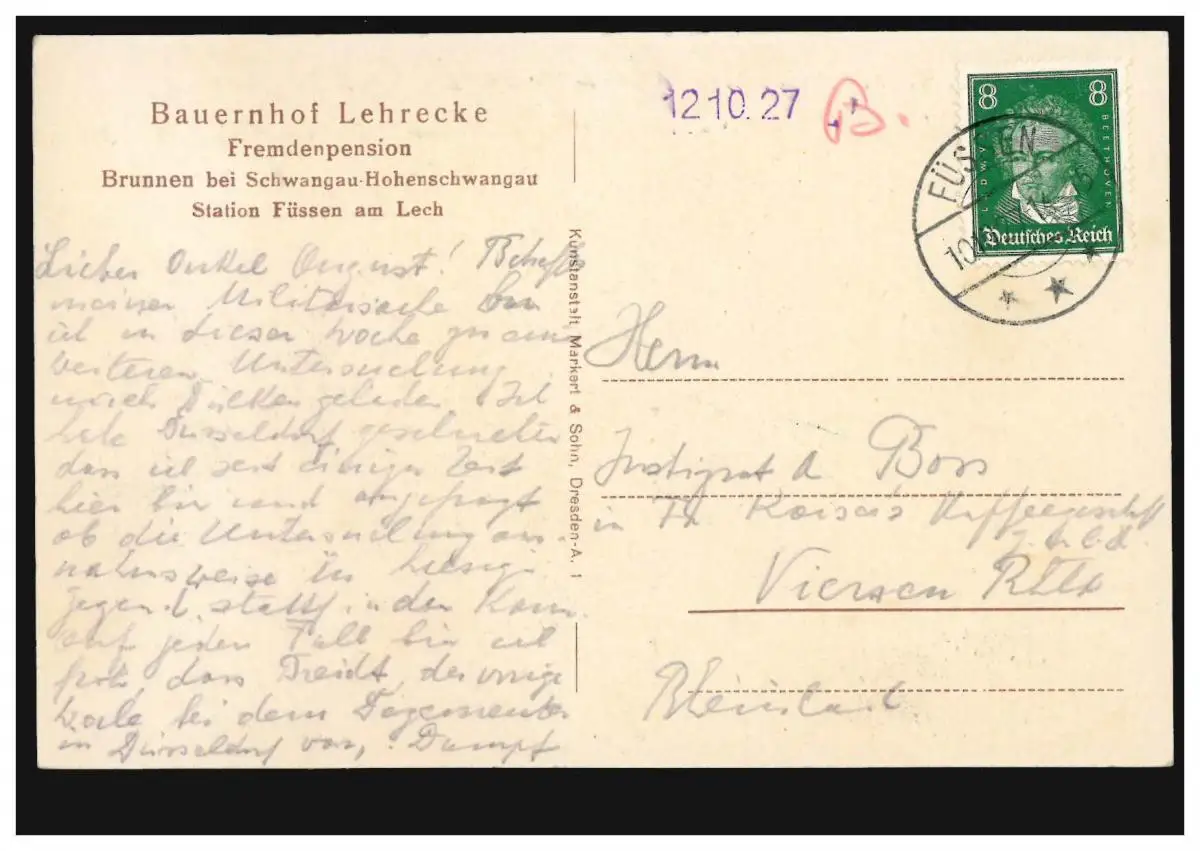 Bauernhof Lehrecke
Fremdenpension
Brunnen bei Schwangau-Hohenschwangau
Station Füssen am Lech
12 10. 27
B.
8 8
LUDWIG V. BEETHOVEN
Deutsches Reich
FÜSSEN
10
Lieber Onkel August! Betreffs
meiner Militärsache bin
ich in dieser Woche zu einer
weiteren Untersuchung
nach Dülken geladen. Ich
habe Düsseldorf geschrieben
dass ich seit einiger Zeit
hier bin und angefragt
ob die Untersuchung aus-
nahmsweise in hiesiger
Gegend stattfinden kann.
auf jeden Fall bin ich
froh, dass der vorige
Woche bei dem
in Düsseldorf war, Dampf
Kunstanstalt Markert & Sohn, Dresden-A. 1
Herrn
Justizrat A Boss
in Fa Kaiser's Kaffeegeschäft
Viersen Rhld
Rheinland